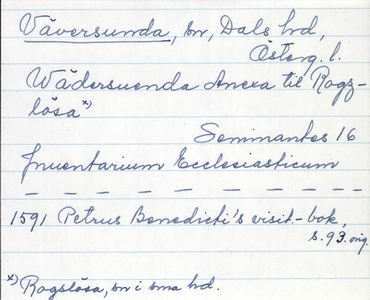 Väversunda, sn, Dals hd,
Österg. l.
Wädersuenda Anexa til Rogz-
lösa x)
Seminantes 16
Inuentarium Ecclesiasticum
— — — — — — — — — — —
1591 Petrus Benedicti's visit-bok,
s. 93 orig.
x) Rogslösa, sn i sma hd.